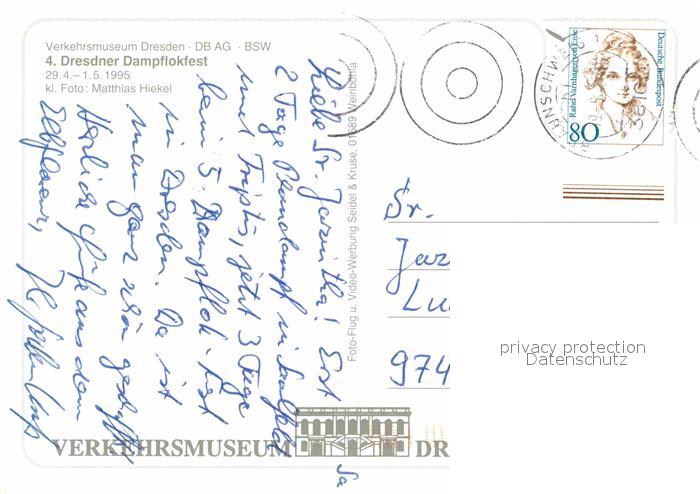 Verkehrsmuseum Dresden · DB AG · BSW
4. Dresdner Dampflokfest
29.4.–1.5.1995
kl. Foto: Matthias Hiekel
Liebe Sr. Jacintha! Erst
2 Tage in
und Triptis, jetzt 3 Tage
beim 5. Dampflok-Fest
in Dresden. Da ist
man ganz schön geschafft
Herzliche Grüße aus dem
Elbflorenz,
Foto-Flug u. Video-Werbung Seidel & Kruse, 01689 Weinböhla
Deutsche Bundespost
Rahel Varnhagen von Ense
80
Sr.
Jac
Lu
974
privacy protection
Datenschutz
VERKEHRSMUSEUM DR